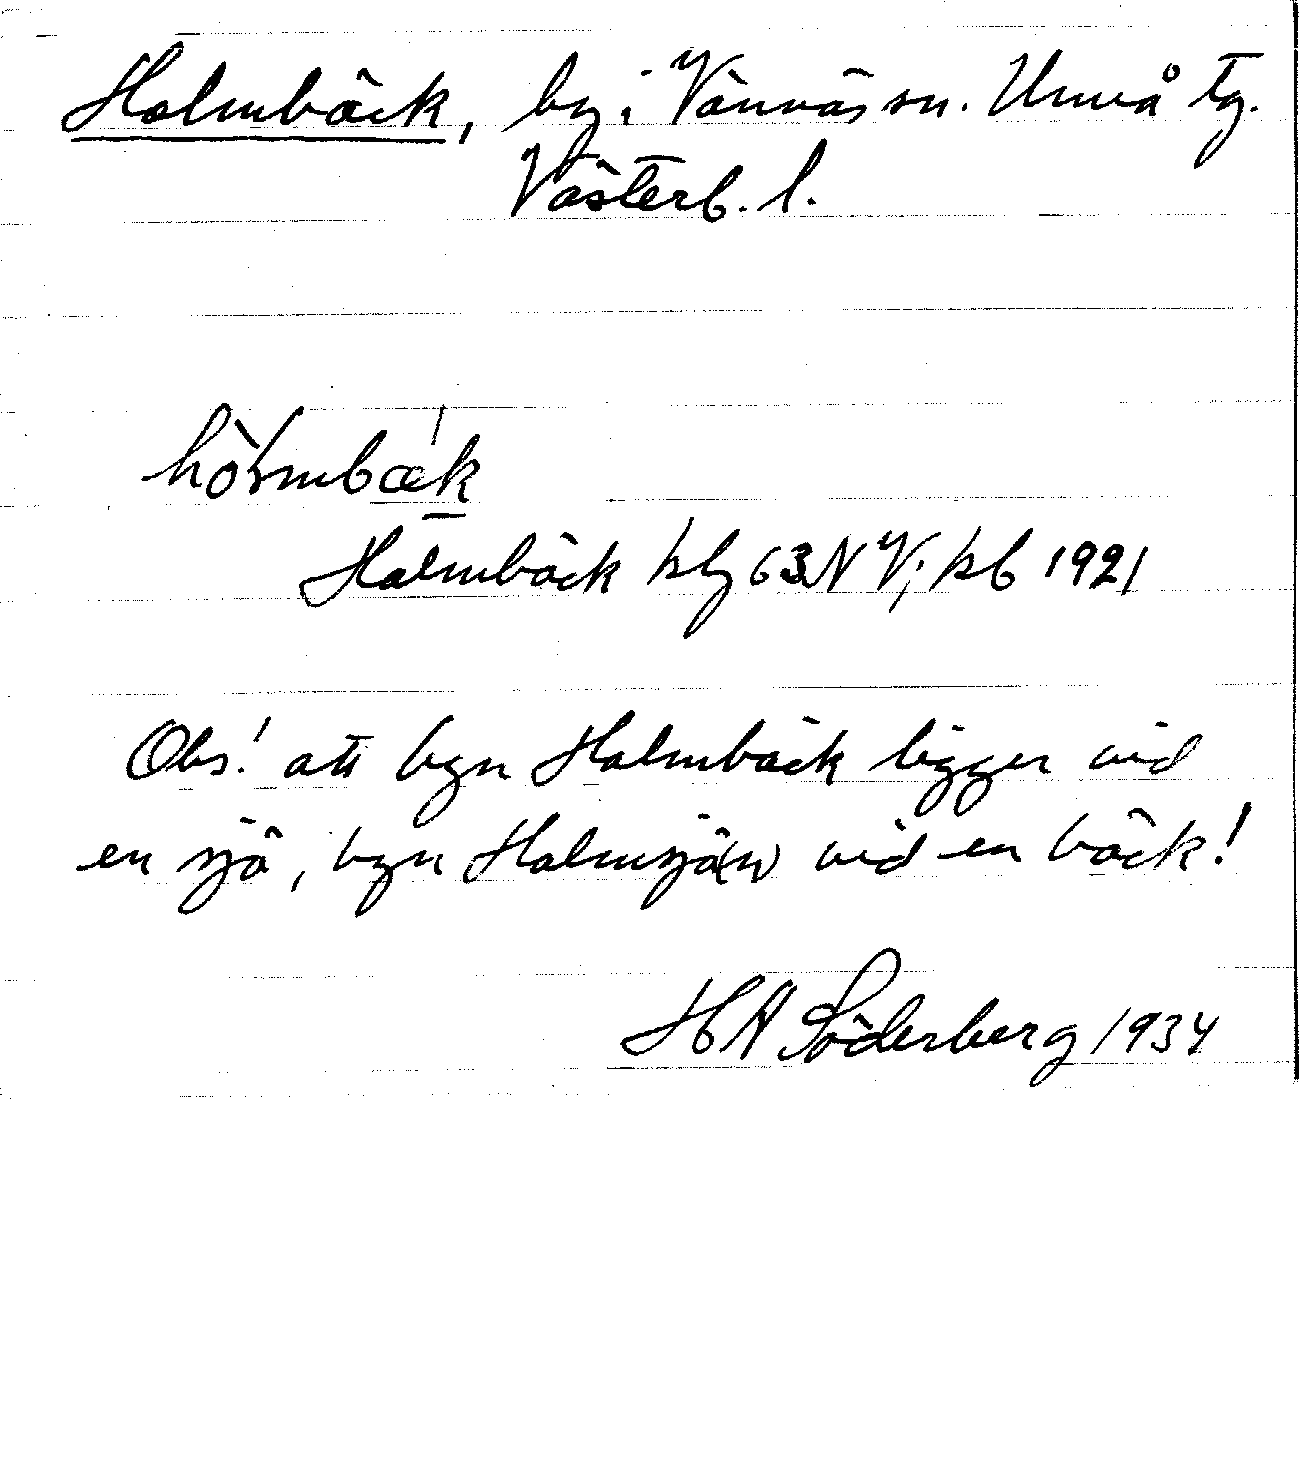 Holmbäck, by i Vännäs sn. Umeå tg.
Västerb. l.
hòlmbæ̀k
Holmbäck blg 63 NV; kb 1921
Obs! att byn Holmbäck ligger vid
en sjö, byn Holmsjö(n) vid en bäck!
HA Söderberg 1934